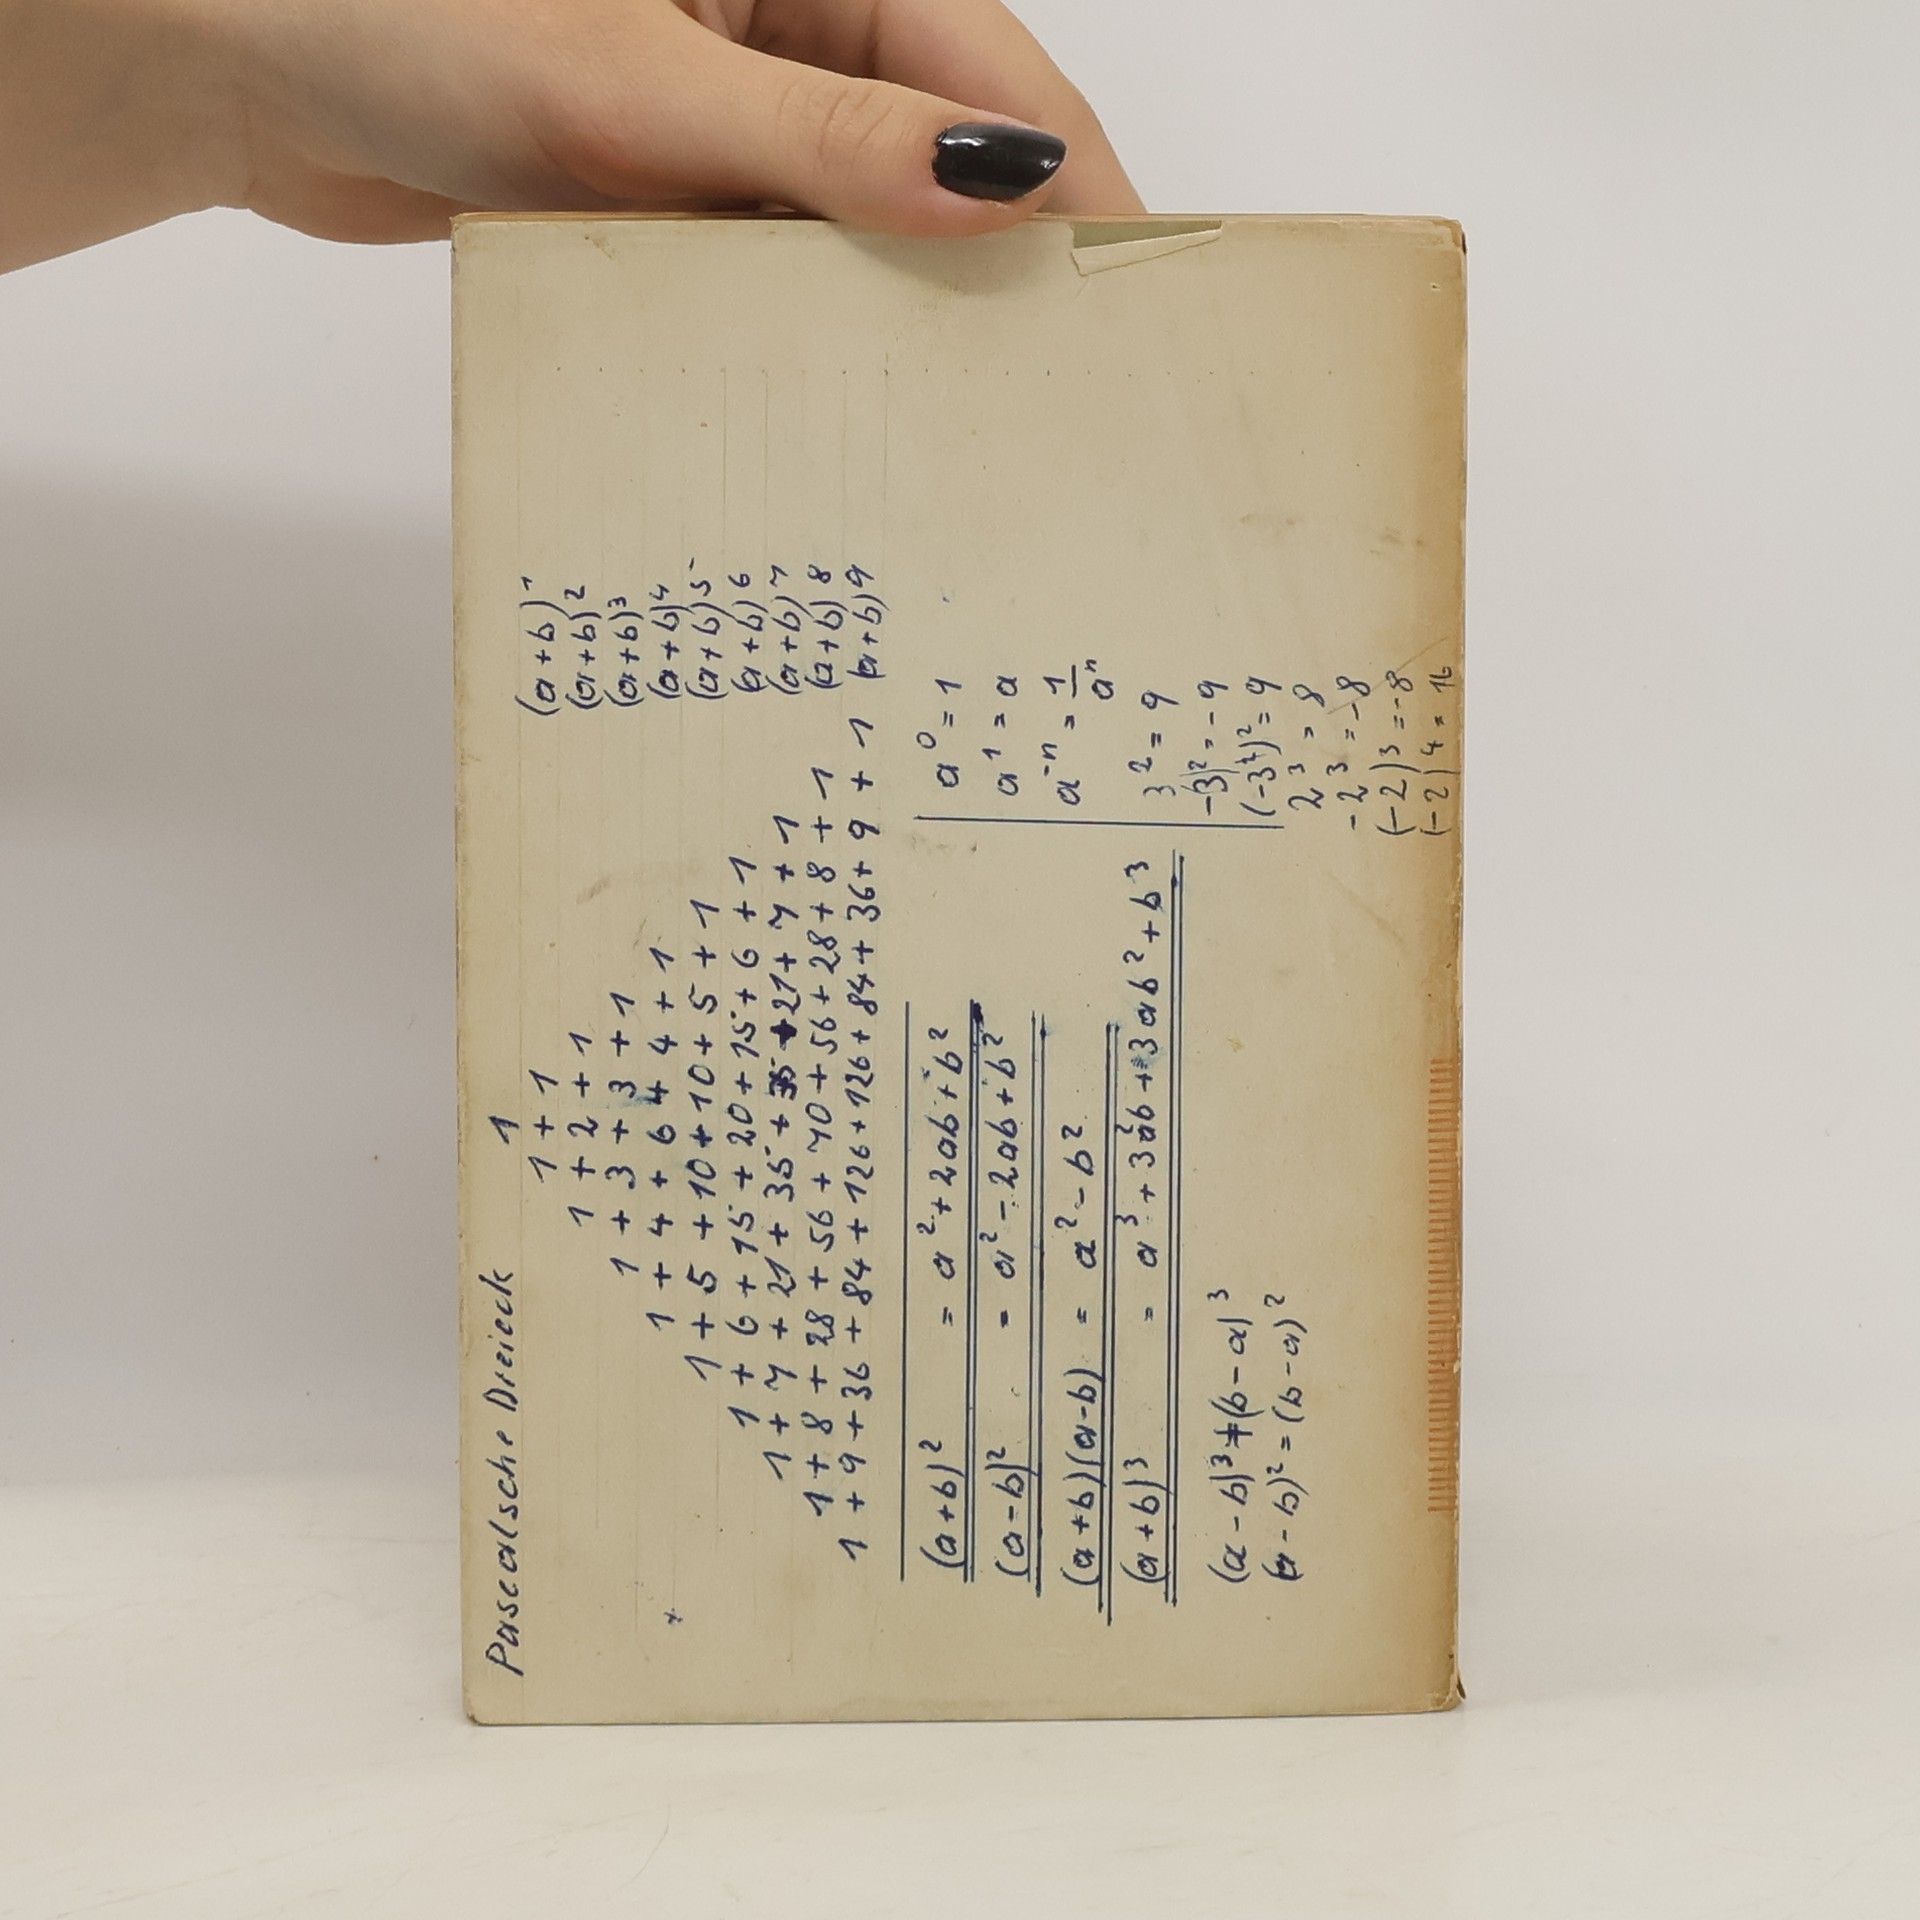 Pascalsche Dreieck
1
1 + 1 (a+b)¹
1 + 2 + 1 (a+b)²
1 + 3 + 3 + 1 (a+b)³
1 + 4 + 6 4 4 + 1 (a+b)⁴
1 + 5 + 10 + 10 + 5 + 1 (a+b)⁵
1 + 6 + 15 + 20 + 15 + 6 + 1 (a+b)⁶
1 + 7 + 21 + 35 + 35 + 21 + 7 + 1 (a+b)⁷
1 + 8 + 28 + 56 + 70 + 56 + 28 + 8 + 1 (a+b)⁸
1 + 9 + 36 + 84 + 126 + 126 + 84 + 36 + 9 + 1 (a+b)⁹
(a+b)² = a² + 2ab + b²
(a-b)² = a² - 2ab + b²
(a+b)(a-b) = a² - b²
(a+b)³ = a³ + 3a²b + 3ab² + b³
(a-b)³ ≠ (b-a)³
(a-b)² = (b-a)²
a⁰ = 1
a¹ = a
a⁻ⁿ = 1/aⁿ
3² = 9
-3² = -9
(-3)² = 9
2³ = 8
-2³ = -8
(-2)³ = -8
(-2)⁴ = 16